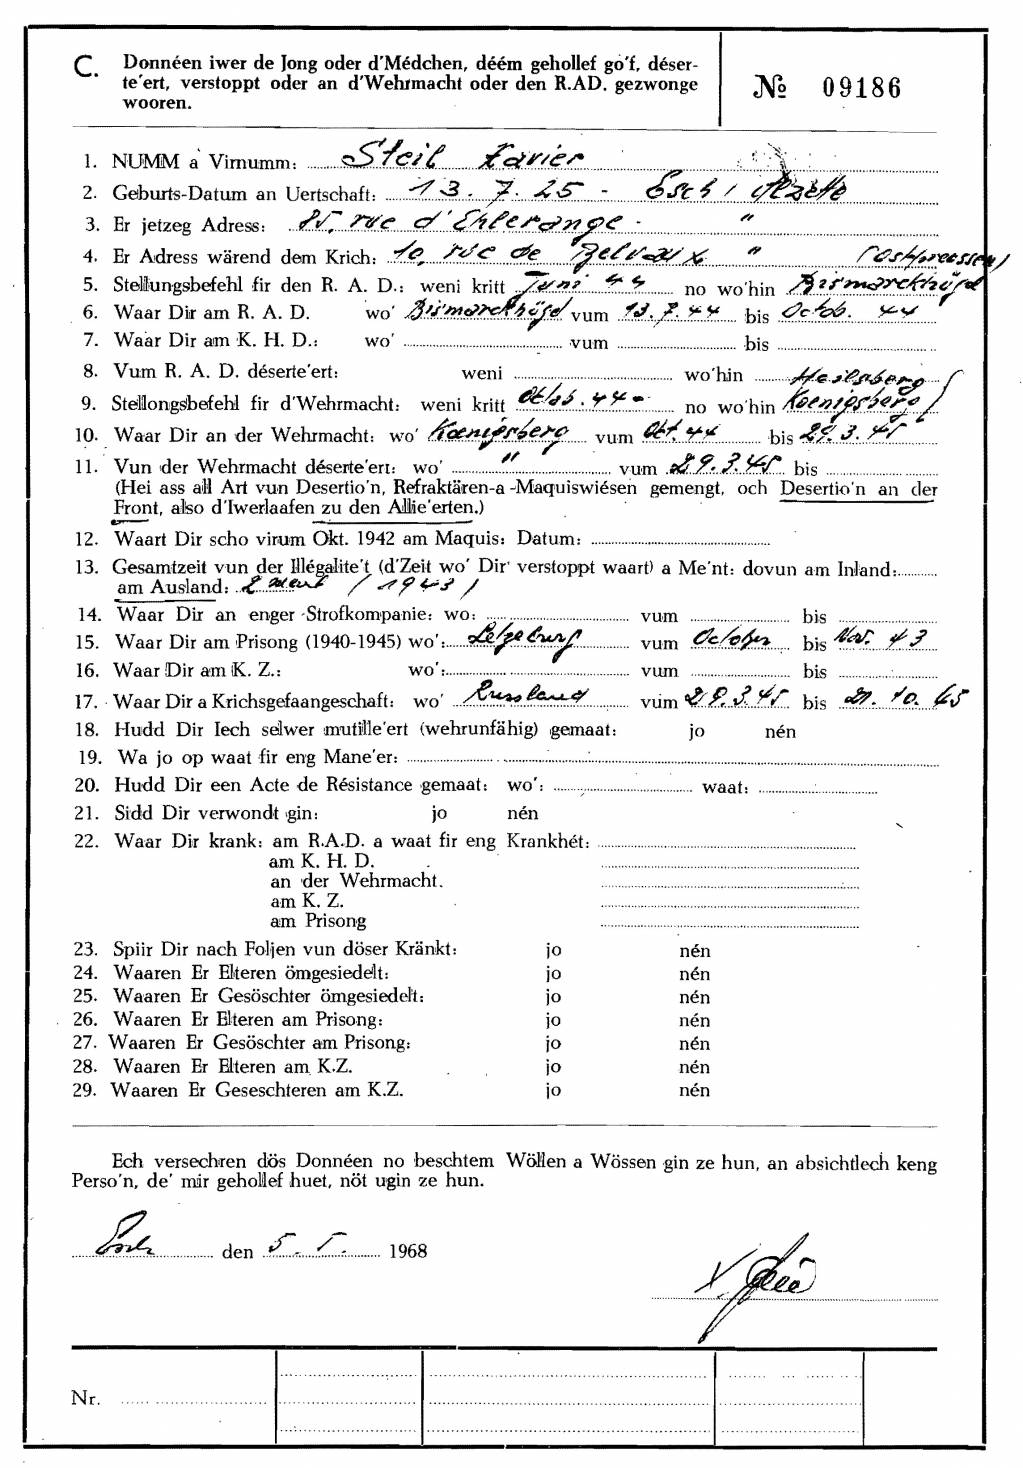 C. Donnéen iwer de Jong oder d'Médchen, déém gehollef go'f, déser-
te'ert, verstoppt oder an d'Wehrmacht oder den R.AD. gezwonge
wooren.
№ 09186
1. NUMM a Virnumm: Steil Xavier
2. Geburts-Datum an Uertschaft: 13.7.25 - Esch / Alzette
3. Er jetzeg Adress: 85, rue d'Ehlerange - "
4. Er Adress wärend dem Krich: 10, rue de Belvaux " (Ostpreussen)
5. Stellungsbefehl fir den R. A. D.: weni kritt Juni 44 no wo'hin Bismarckhügel
6. Waar Dir am R. A. D. wo' Bismarckhügel vum 13.7.44 bis Octob. 44
7. Waar Dir am K. H. D.: wo' vum bis
8. Vum R. A. D. déserte'ert: weni wo'hin Heilsberg
9. Stellongsbefehl fir d'Wehrmacht: weni kritt Octob. 44 no wo'hin Koenigsberg
10. Waar Dir an der Wehrmacht: wo' Koenigsberg vum Okt. 44 bis 29.3.45
11. Vun der Wehrmacht déserte'ert: wo' " vum 29.3.45 bis
(Hei ass all Art vun Desertio'n, Refraktären-a -Maquiswiésen gemengt, och Desertio'n an der
Front, also d'Iwerlaafen zu den Allie'erten.)
12. Waart Dir scho virum Okt. 1942 am Maquis: Datum:
13. Gesamtzeit vun der Illégalite't (d'Zeit wo' Dir verstoppt waart) a Me'nt: dovun am Inland:
am Ausland: 2 Ment (1943)
14. Waar Dir an enger Strofkompanie: wo: vum bis
15. Waar Dir am Prisong (1940-1945) wo': Letzeburg vum October bis Nov. 43
16. Waar Dir am K. Z.: wo': vum bis
17. Waar Dir a Krichsgefaangeschaft: wo' Russland vum 29.3.45 bis 21.10.45
18. Hudd Dir Iech selwer mutille'ert (wehrunfähig) gemaat: jo nén
19. Wa jo op waat fir eng Mane'er:
20. Hudd Dir een Acte de Résistance gemaat: wo': waat:
21. Sidd Dir verwondt gin: jo nén
22. Waar Dir krank: am R.A.D. a waat fir eng Krankhét:
am K. H. D.
an der Wehrmacht.
am K. Z.
am Prisong
23. Spiir Dir nach Foljen vun döser Kränkt: jo nén
24. Waaren Er Elteren ömgesiedelt: jo nén
25. Waaren Er Gesöschter ömgesiedelt: jo nén
26. Waaren Er Elteren am Prisong: jo nén
27. Waaren Er Gesöschter am Prisong: jo nén
28. Waaren Er Elteren am K.Z. jo nén
29. Waaren Er Geseschteren am K.Z. jo nén
Ech versechren dös Donnéen no beschtem Wöllen a Wössen gin ze hun, an absichtlech keng
Perso'n, de' mir gehollef huet, nöt ugin ze hun.
Esch den 5. 5. 1968
Nr.